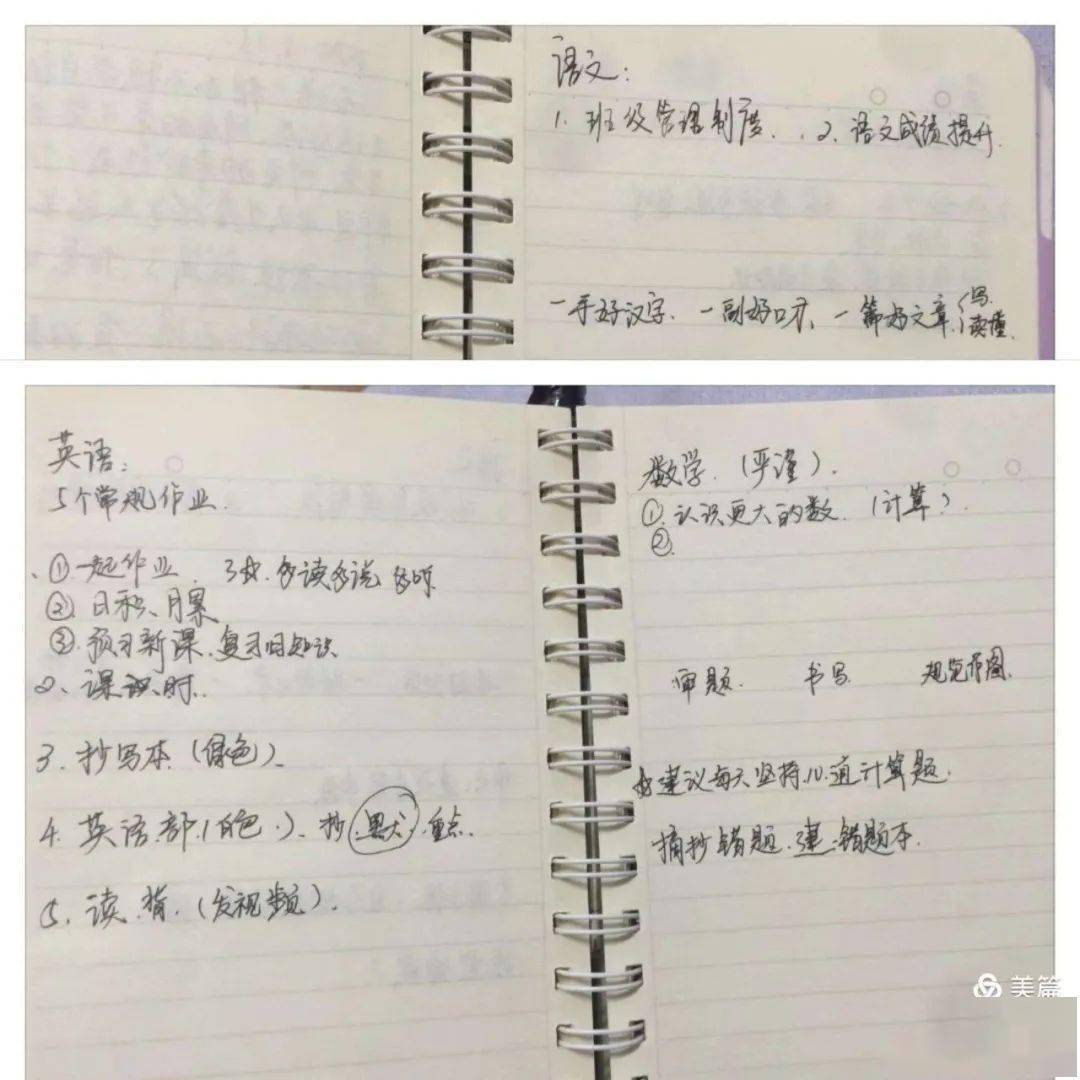 语文：
1. 班级管理制度. 2. 语文成绩提升.
一手好汉字、一副好口才、一篇好文章
写.
读懂.
英语：
5个常规作业.
①.一起作业. 多读多说 多听
②.日积、月累
③.预习新课.复习旧知识
2、课 时.
3.抄写本.(绿色)、
4.英语 (白色.)、抄.默.重点.
5.读.背.(发视频).
数学.(严谨).
①.认识更大的数.(计算).
②.
审题. 书写 规范作图.
建议每天坚持.10.道计算题.
摘抄错题.建.错题本.
美篇